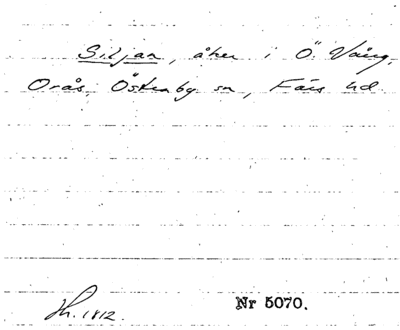 Siljan, åker i Ö. Vång,
Orås, Östraby sn, Färs hd.
Jh. 1812.
Nr 5070.